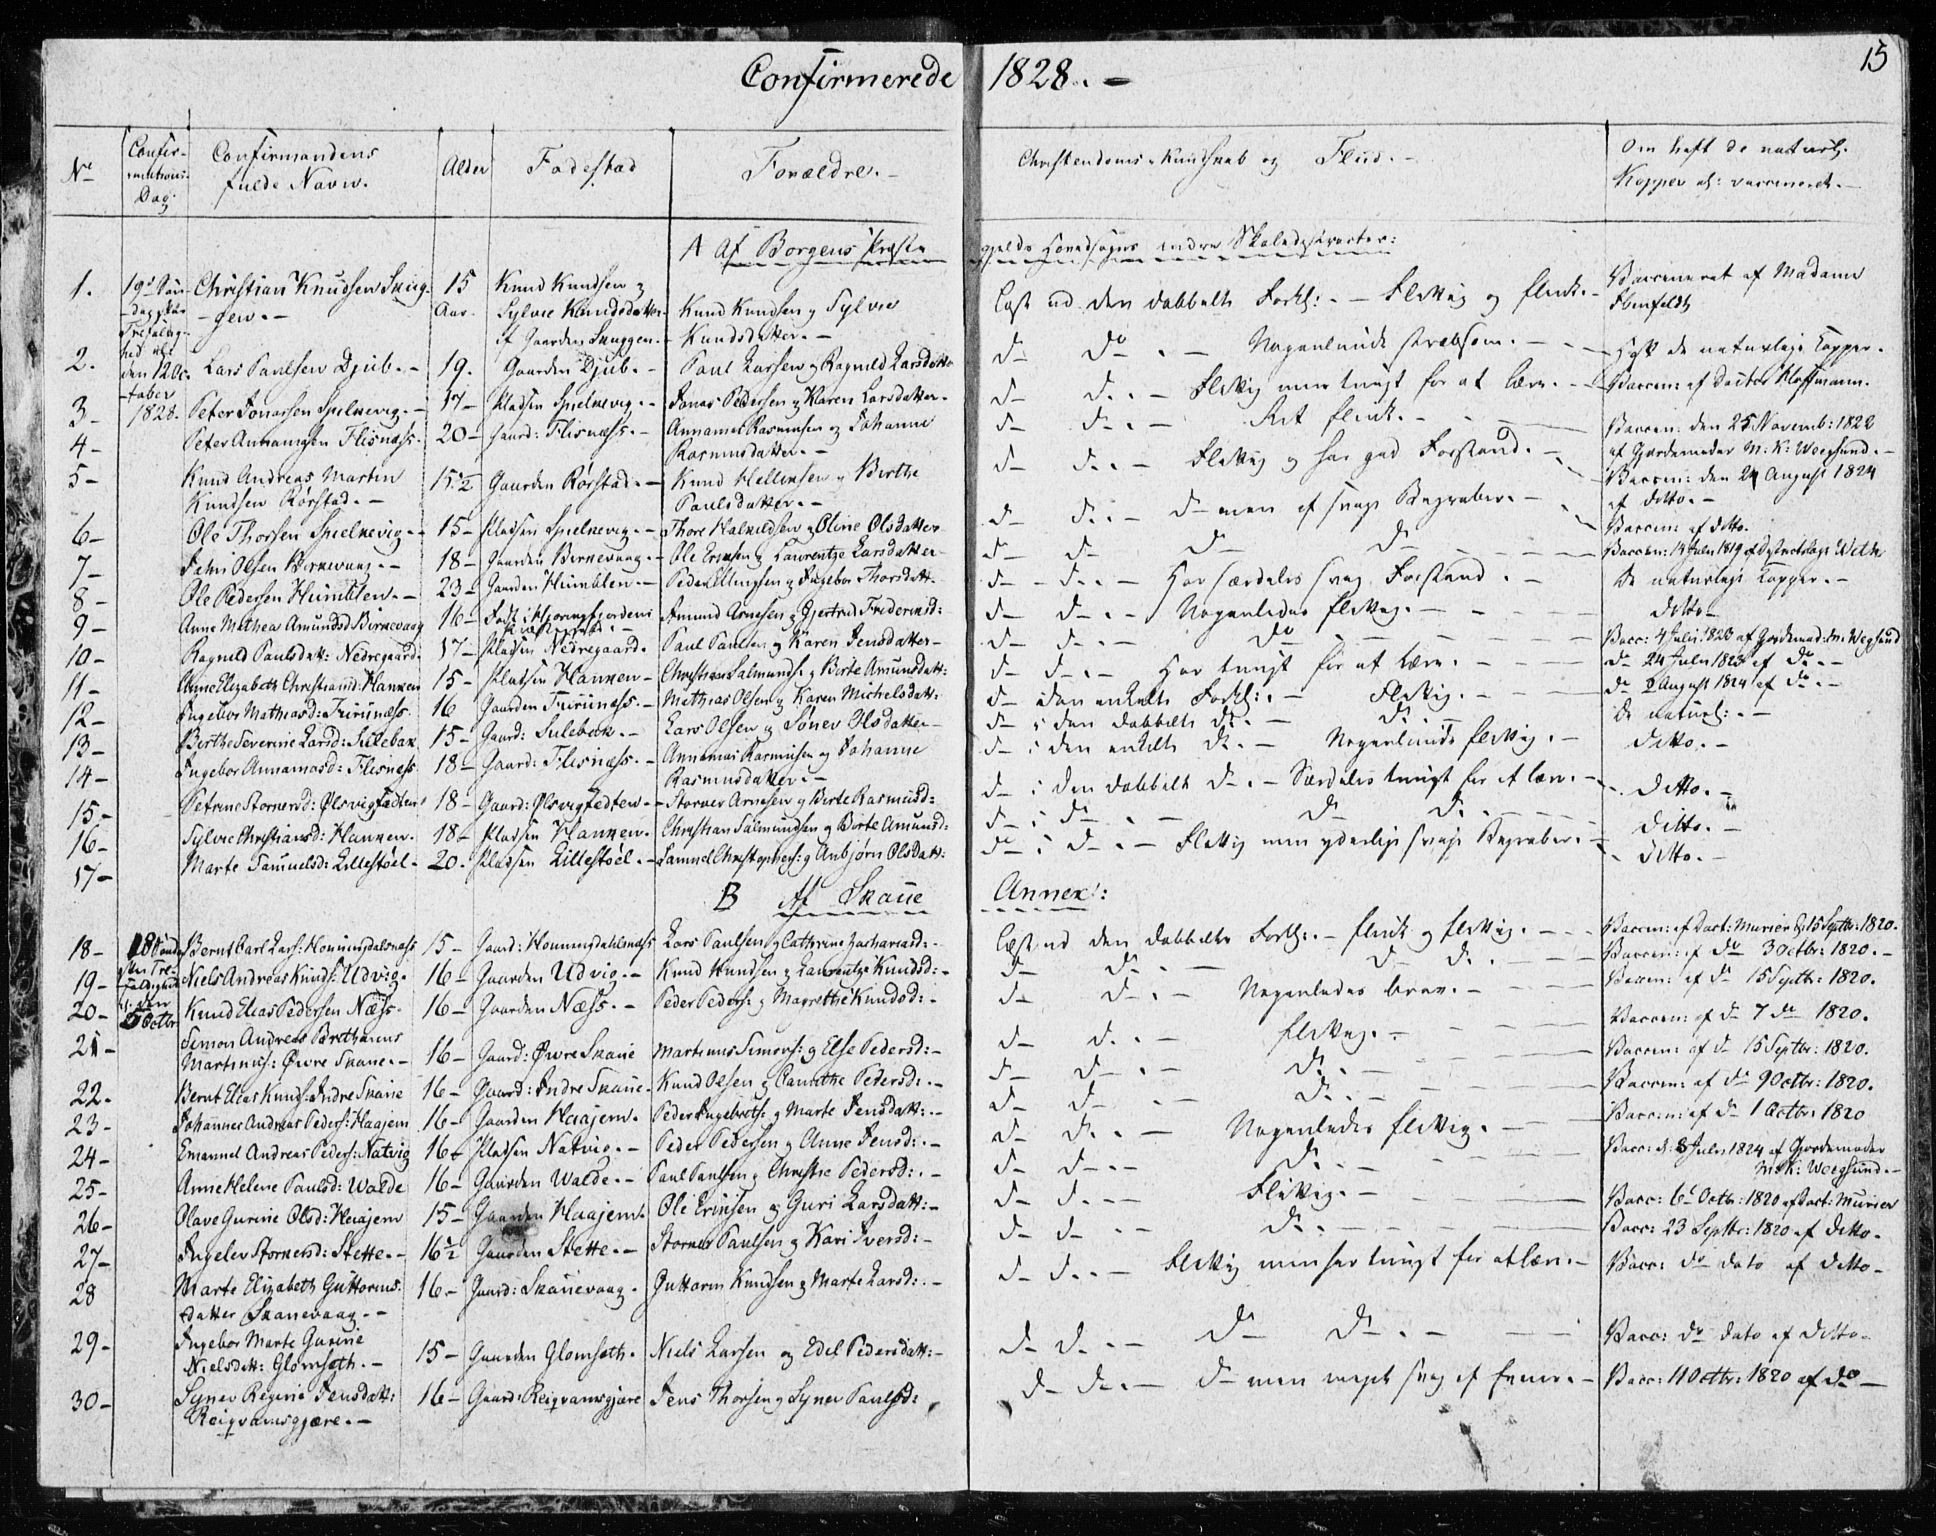 15
Confirmerede 1828. -
No
Confir-
mations
Dag.
Confirmandens
fulde Navn.
Alder
Fødestad
Forældre. -
Christendoms-Kundskab og Flid. -
Om haft de naturl.
Kopper el: vaccineret. -
A Af Borgens Præste
gjelds Hovedsogns indre Skoledistricter:
1. 19de Søn- Christian Knudsen Skug- 15 Knud Knudsen og Knud Knudsen og Sylvie Læst ud den dobbelte Forkl: - Flittig og flink. - Vaccineret af Madame
-dag efter -gen. - Aar. Sylvie Knudsdatter Kundsdatter. - Ebenfeldt
Trefoldig- af Gaarden Skuggen. -
2. den 12 Oc- Lars Paulsen Djub. - 19. Gaarden Djub. - Paul Larsen og Ragnild Larsdatter do do. - Nogenlunde stræbsom. - Haft de naturlige Kopper.
-tober
3 - 1828. Peter Jonassen Spelkevig. - 17 - Pladsen Spelkevig. - Jonas Pedersen og Karen Larsdatter. do do. - Flittig men tungt for at lære. - Vaccin: af Doctor Hoffmann.
4 - Peter Annanias: Flisnæss. 20 - Gaard: Flisnæss. - Annanias Rasmusen og Johanne do do. - Ret flink. - Vaccin: den 25 Novemb: 1822
Rasmusdatter. - af Gjordemoder M. K: Weegsund. -
5 - Knud Andreas Martin 15 1/2 Gaarden Rørstad. - Knud Hellensen og Birthe do do. - Flittig og har god Forstand. - Vaccin: den 24 August 1824
Knudsen Rørstad. - Paulsdatter. - af ditto. -
6 - Ole Thorsen Spelkevig. - 15 - Pladsen Spelkevig. - Thore Halvildsen og Oline Olsdatter do do. - do men af svage Begreber. - Vaccin: af ditto.
7 - Jahn Olsen Birkevaag. - 18 - Gaarden Birkevaag. - Ole Ericksen og Laurentze Larsdatter - do do do do - Vaccin: 14 Julii 1819 af Districtslæge With
8 - Ole Pedersen Humblen. - 23 - Gaarden Humblen. - Peder Ellingsen og Ingebor Thorsdatt. do - do. - Har særdeles svag Forstand. - De naturlige Kopper. -
9 - Anne Mathea Amundsd Birkevaag 16 - Født i Hjøringfjorden Amund Arnesen og Gjertrud Fredericsd: do do. - Nogenledes flittig. - ditto -
10 - Ragnild Paulsdatt: Nedregaard. 17 - Pladsen Nedregaard. Paul Paulsen og Karen Jensdatter - do do. - do - Vacc: 4 Julii 1823 af Gjordemod: M: Wegsund
11 - Anne Elizabeth Christiansd: Hanken 15 - Pladsen Hanken - Christian Salmunds: og Berte Amundsdatt: do do. - Har tungt for at lære. - do 24 Julii 1823 af do. -
12 - Ingebor Mathiasd: Furunæss. 16 Gaarden Furunæss. - Mathias Olsen og Karen Michelsdatt: do den enkelte Forkl: - Flittig. - do 2 August 1824 af do. -
13 - Birthe Severine Larsd: Sulebak 15 - Gaard: Sulebak. - Lars Olsen og Sønev Olsdatter - do i den dobbelte do. - do - De naturl: -
14 - Ingebor Annaniasd: Flisnæss. 18 - Gaard: Flisnæss. - Annanias Rasmusen og Johanne do i den enkelte do. - Nogenlunde flittig. - ditto. -
Rasmusdatter. -
15 - Petrine Stornesd: Ølsvigfødten 18 - Gaard: Ølsvigfødten. - Storner Arnesen og Berte Rasmusd: do i den dobbelt do. - Særdeles tungt for at lære. - ditto. -
16 - Sylvie Christiansd: Hanken. 18 - Pladsen Hanken. Christian Salmundsen og Berte Amunsd: do i do. - do do. - ditto. -
17 - Marte Samuelsd: Lillestøel - 20. Pladsen Lillestøel. - Samuel Christophers: og Anbjørn Olsdatt: do i do. - Flittig men yderlige svage Begreber. - ditto. -
B Af Skaue Annex:
18 - 18 Sønd. Bernt Carl Lars: Honningdalsnæss 15 - Gaard: Honningdahlsnæss Lars Paulsen og Cathrine Zachariasd: - Læst ud den dobbelte Forkl: - flink og flittig. - Vaccin: af Doct: Murier d. 15 Septbr: 1820.
19 - efter Tre- Niels Andreas Knuds: Udvig. 16 - Gaarden Udvig. - Knud Knudsen og Laurentze Knudsd: - do do. - do do. - Vaccin: af do 3 Octbr: 1820. -
foldighed
20 - 5 Octbr Knud Elias Pedersen Næss. 16 - Gaarden Næss. - Peder Peders: og Magrethe Knudsd: - do do. - Nogenledes brav. - Vaccin: af do 15 Septbr: 1820.
21 - Simon Andreas Brethanus
Martinus: Øvre Skaue. - 16 - Gaard: Øvre Skaue Martinus Simons: og Else Pedersd: - do do. - flittig. - Vaccin: af do 7 do 1820.
22. Bernt Elias Knuds: Indre Skaue 16 - Gaard: Indre Skaue - Knud Olsen og Canutthe Pedersd: - do do. - do. - Vaccin: af do 15 Septbr: 1820.
23 - Johannes Andreas Peders: Haajem 16 - Gaarden Haajem. - Peder Ingebreths: og Marte Jensdatt: - do do - do. - Vaccin: af do 9 Octbr: 1820.
24 - Emanuel Andreas Peders: Natvig 16 - Pladsen Natvig. - Peder Pedersen og Anne Jensd: - do do. - Nogenledes flittig. - Vaccin: af do 1 Octbr: 1820
25 - Anne Helene Paulsd: Walde 16 - Gaarden Walde. - Paul Paulsen og Christie Pedersd: - do do. - do. - Vacc: d: 8 Julii 1824 af Gjordemoder
M: K: Weegsund. -
26 - Olave Gurine Olsd: Haajem 15 - Gaarden Haajem. Ole Ericksen og Guri Larsdatt: - do do. - Flittig. - Vacc: 6 Octbr: 1820 af Doct: Murier
27 - Ingelev Stornersd: Stette. - 16 1/2 Gaarden Stette. - Storner Paulsen og Kari Iversd: - do do - do. - Vacc: 23 Septbr: 1820 af ditto.
28 Marte Elizabeth Guttorms- 16 - Gaard: Skauevaag. Guttorm Knudsen og Marte Larsd: - do do. - Flittig men har tungt for at lære. - Vacc: do dato af ditto -
datter Skauevaag. -
29 - Ingebor Marte Gurine
Nielsdatt: Glomseth. - 15 - Gaarden Glomseth. Niels Larsen og Edel Pedersdatt: - do do. - do do. - Vacc: do dato af ditto -
30 - Synev Regine Jensdatt: 16 - Gaard: Reiqvamsgjære Jens Thorsen og Synev Paulsd: do do. - do men noget svag af Evner. - Vacc: 11 Octbr: 1820 af do -
Reiqvamsgjære. -